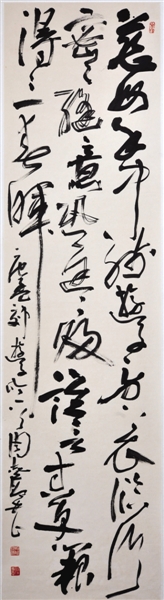 慈母手中線遊子身上衣臨行
密〻縫意恐遲〻歸誰言寸草心報
得三春暉 唐孟郊遊子吟